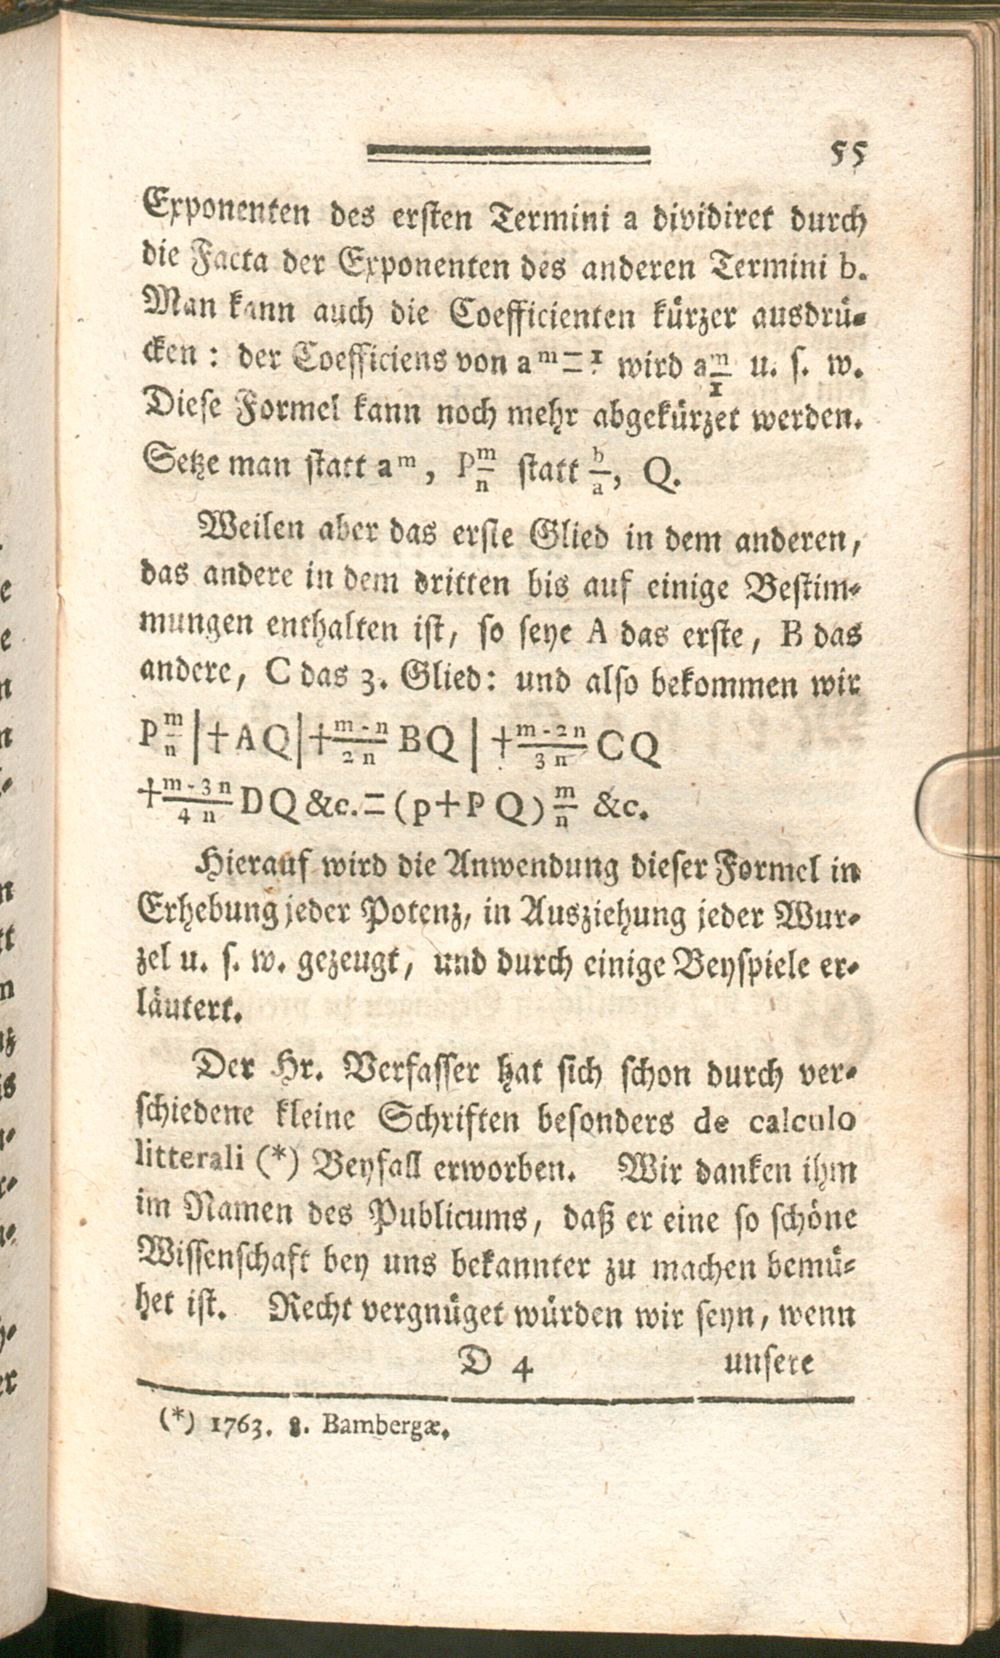 55
Exponenten des ersten Termini a dividiret durch
die Facta der Exponenten des anderen Termini b.
Man kann auch die Coefficienten kürzer ausdrü-
cken: der Coefficiens von a^m−1 wird a m/1 u. s. w.
Diese Formel kann noch mehr abgekürzet werden.
Setze man statt a^m, P m/n statt b/a, Q.
Weilen aber das erste Glied in dem anderen,
das andere in dem dritten bis auf einige Bestim-
mungen enthalten ist, so seye A das erste, B das
andere, C das 3. Glied: und also bekommen wir
P m/n | +AQ | + m-n/2n BQ | + m-2n/3n CQ
+ m-3n/4n DQ &c. = (p+PQ) m/n &c.
Hierauf wird die Anwendung dieser Formel in
Erhebung jeder Potenz, in Ausziehung jeder Wur-
zel u. s. w. gezeugt, und durch einige Beyspiele er-
läutert.
Der Hr. Verfasser hat sich schon durch ver-
schiedene kleine Schriften besonders de calculo
litterali (*) Beyfall erworben. Wir danken ihm
im Namen des Publicums, daß er eine so schöne
Wissenschaft bey uns bekannter zu machen bemü-
het ist. Recht vergnüget würden wir seyn, wenn
D 4 unsere
(*) 1763. 8. Bambergæ.